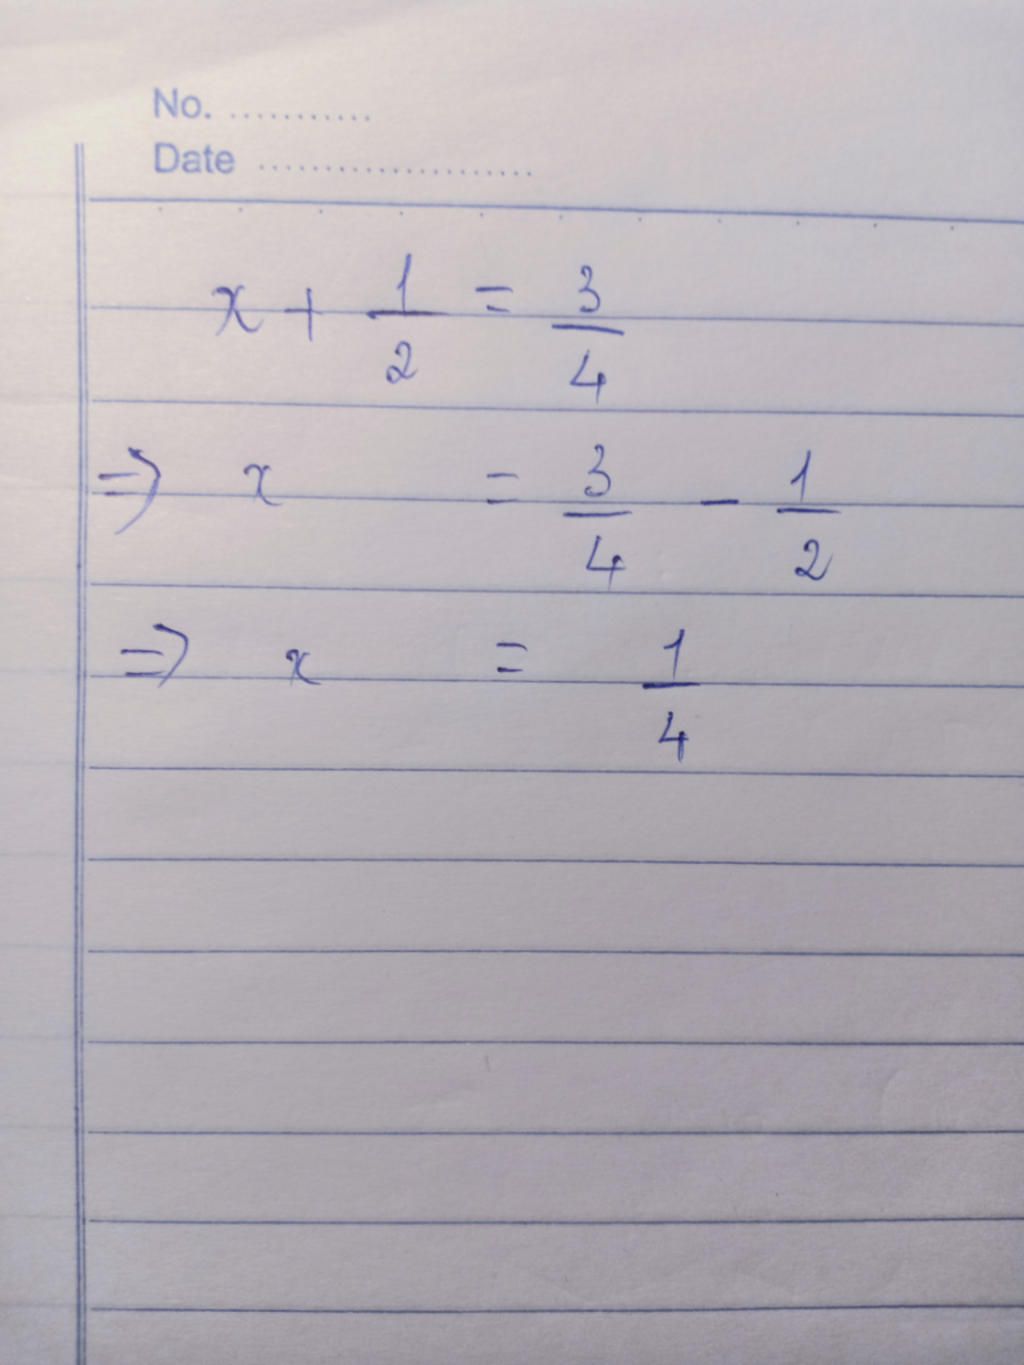 No. ...........
Date ....................
x + 1/2 = 3/4
⇒ x = 3/4 - 1/2
⇒ x = 1/4